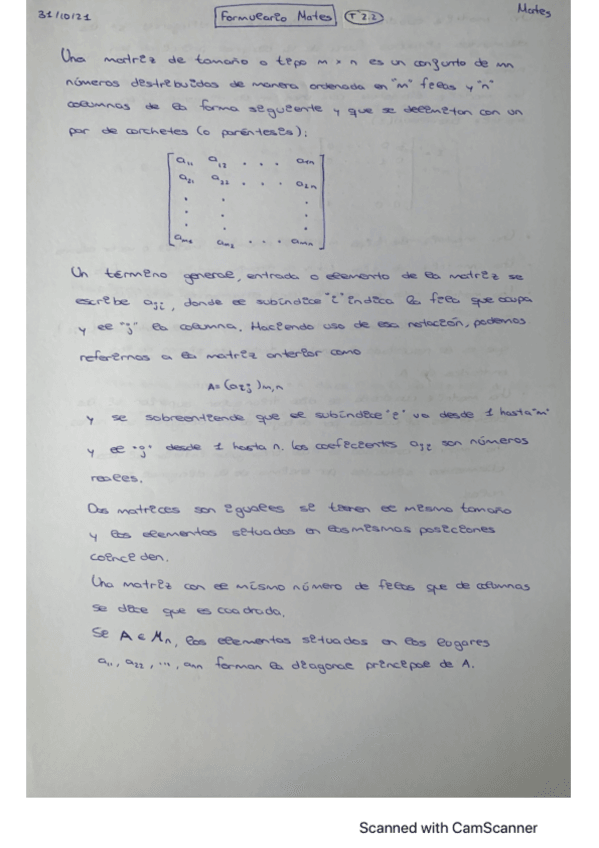 31/10/21 Formulario Mates T 2.2 Mates
Una matriz de tamaño o tipo m x n es un conjunto de mn
números distribuidos de manera ordenada en "m" filas y "n"
columnas de la forma siguiente y que se delimitan con un
par de corchetes (o paréntesis):
a₁₁ a₁₂ . . . a₁n
a₂₁ a₂₂ . . . a₂n
. . .
. . .
. . .
am₁ am₂ . . . amn
Un término general, entrada o elemento de la matriz se
escribe aji, donde el subíndice "i" indica la fila que ocupa
y el "j" la columna. Haciendo uso de esa notación, podemos
referirnos a la matriz anterior como
A=(aij)m,n
y se sobreentiende que el subíndice "i" va desde 1 hasta "m"
y el "j" desde 1 hasta n. Los coeficientes aji son números
reales.
Dos matrices son iguales si tienen el mismo tamaño
y los elementos situados en las mismas posiciones
coinciden.
Una matriz con el mismo número de filas que de columnas
se dice que es cuadrada.
Si A ∈ Mn, los elementos situados en los lugares
a₁₁, a₂₂, ..., ann forman la diagonal principal de A.
Scanned with CamScanner